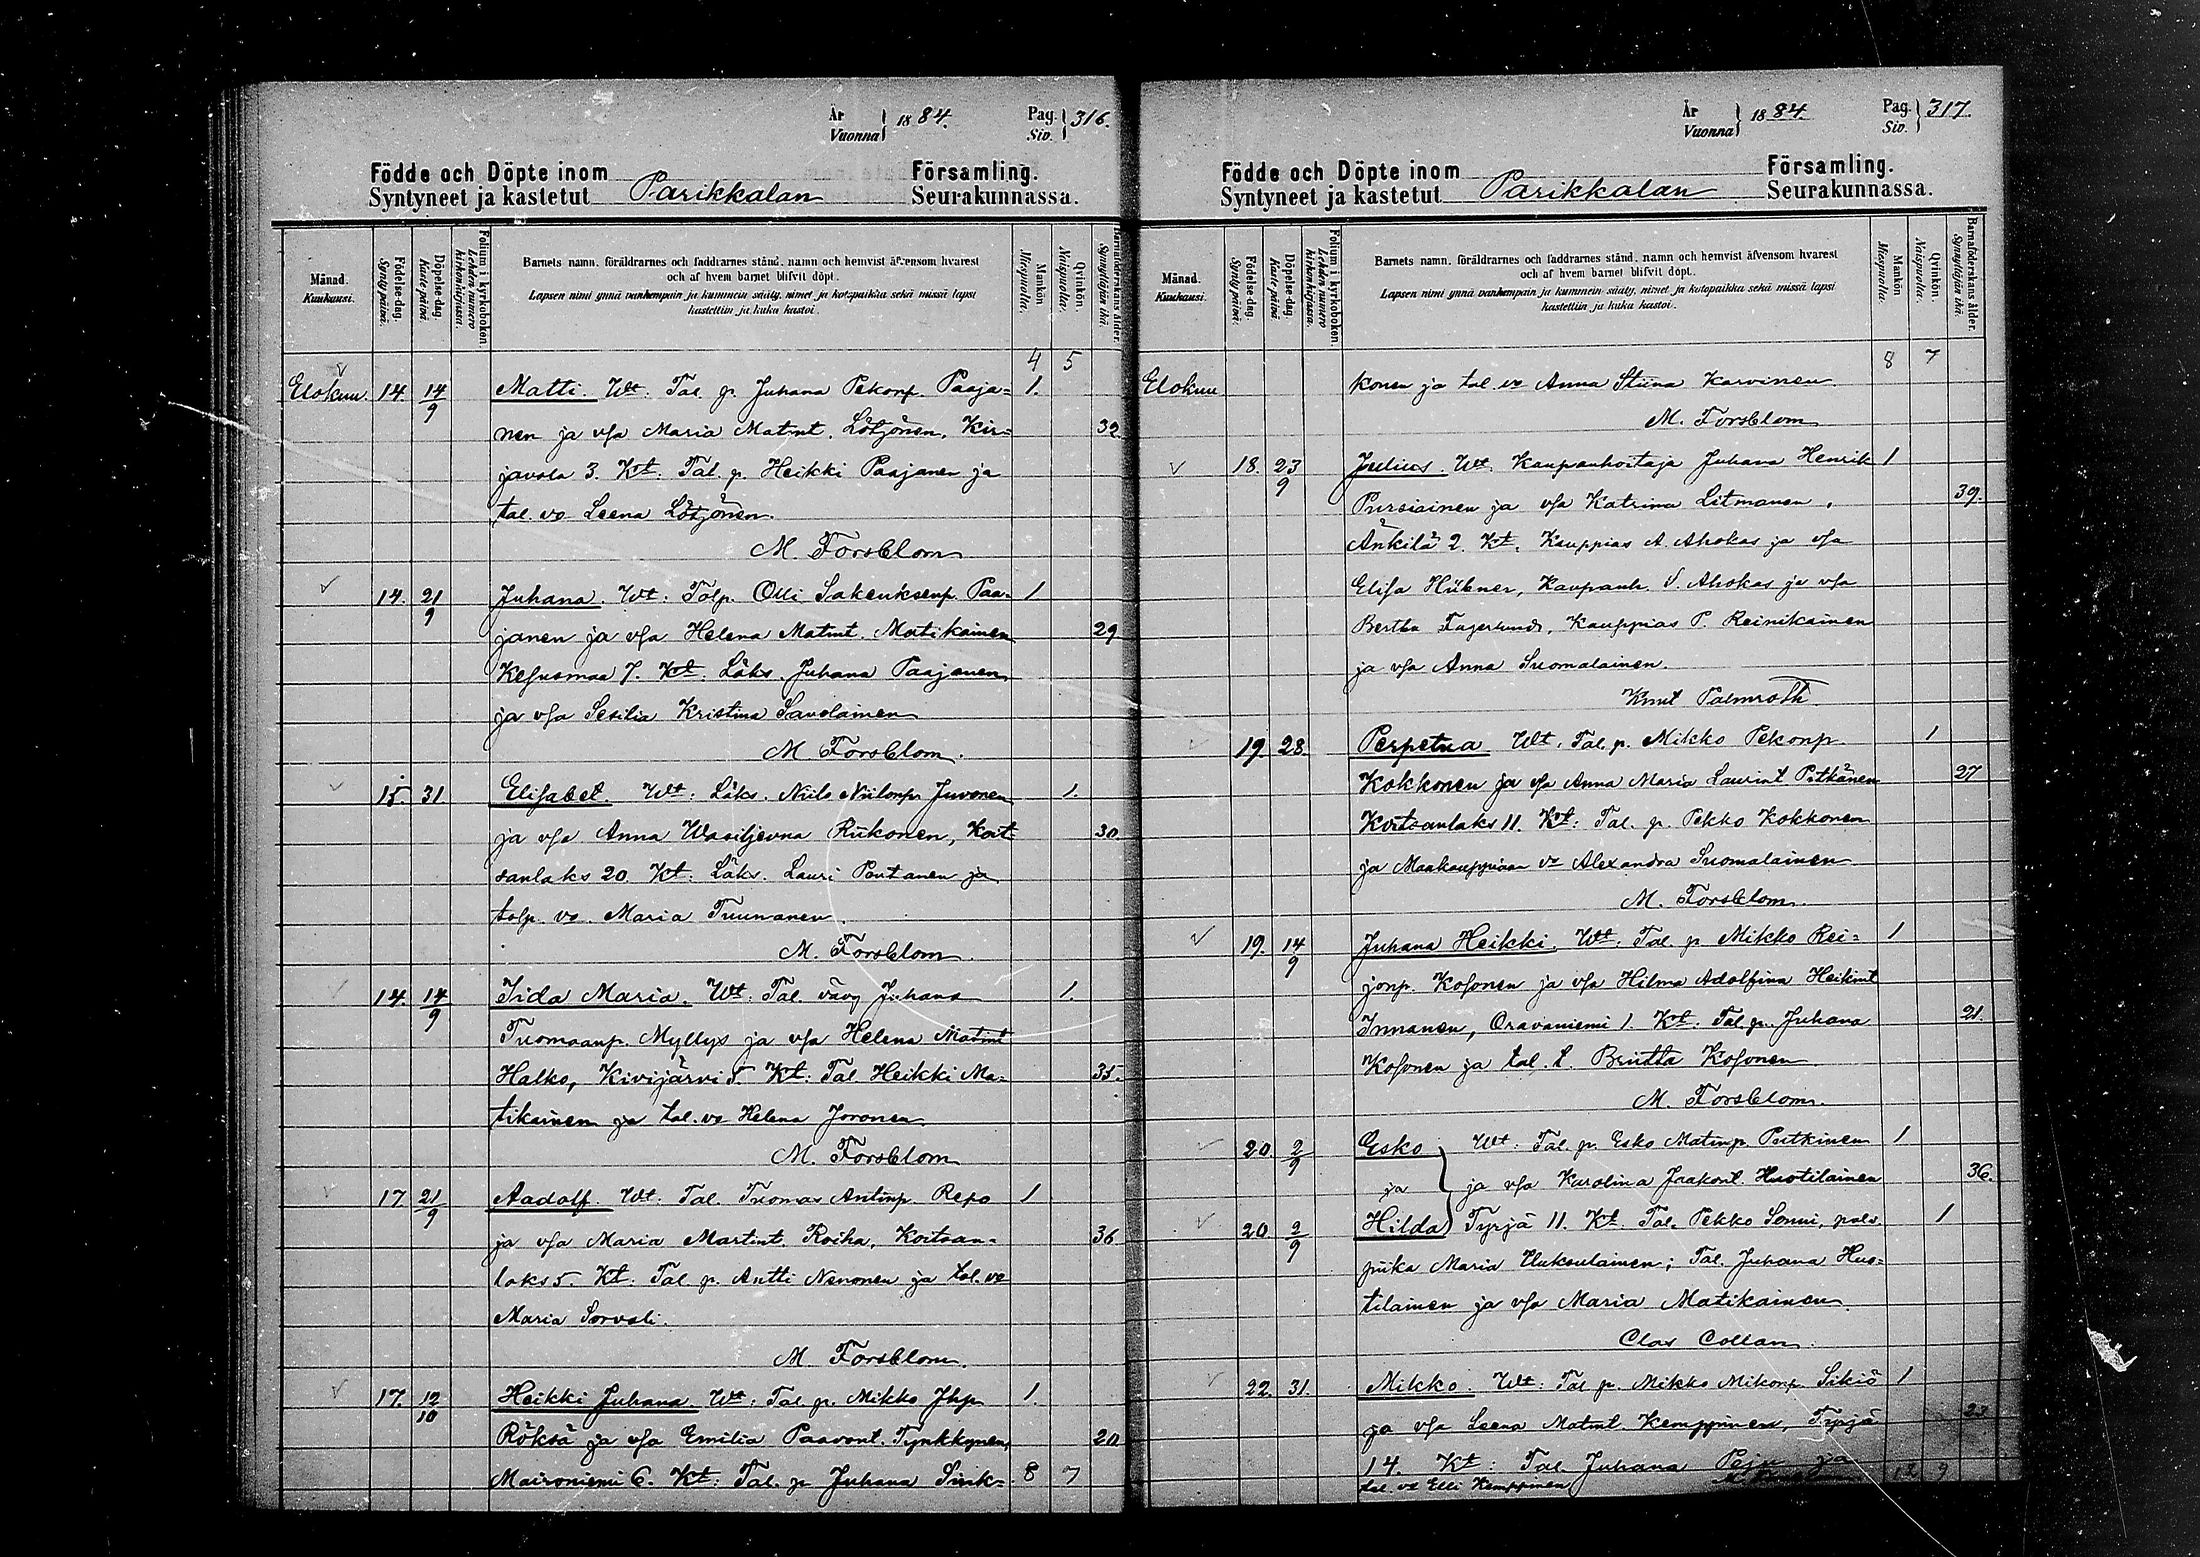 År
Vuonna } 1884. Pag.
Siv. } 316.
Födde och Döpte inom Församling.
Syntyneet ja kastetut Parikkalan Seurakunnassa.
Månad.
Kuukausi.
Födelse-dag.
Synty päinä.
Döpelse-dag.
Kaste päinä.
Folium i kyrkoboken.
Lehden numero kirkonkirjassa.
Barnets namn, föräldrarnes och faddrarnes stånd, namn och hemvist äfvensom hvarest
och af hvem barnet blifvit döpt.
Lapsen nimi ynnä vanhempain ja kummein sääty, nimet ja kotopaikka sekä missä lapsi
kastettiin ja kuka kastoi.
Mankön
Miespuolta.
Qvinkön.
Naispuolta.
Barnaföderskans ålder.
Synnyttäjän ikä.
4 5
Elokuu 14. 14/9 Matti. Wt: Tal. p. Juhana Pekonp. Paaja= 1.
nen ja vsa Maria Matint. Lötjönen, Kir= 32
javala 3. Kt: Tal. p. Heikki Paajanen ja
tal. vo Leena Lötjönen.
M. Forsblom
14. 21/9 Juhana. Wt: Talp. Olli Sakeuksenp. Paa- 1
janen ja vsa Helena Matint. Matikainen 29
Kesusmaa 7. Kt: Läks. Juhana Paajanen
ja vsa Sesilia Kristina Savolainen
M. Forsblom.
15. 31 Elisabet. Wt: Läks. Niilo Niilonp. Juvonen 1.
ja vsa Anna Wasiljevna Riikonen, Koit- 30.
sanlaks 20 Kt: Läks. Lauri Pontanen ja
talp. vo. Maria Tuunanen.
M. Forsblom.
14. 14/9 Iida Maria. Wt: Tal. vävy Juhana 1.
Tuomaanp. Myllys ja vsa Helena Matint
Halko, Kivijärvi 5. Kt: Tal Heikki Ma- 35.
tikainen ja tal. vo Helena Joronen.
M. Forsblom
17. 21/9 Aadolf. Wt: Tal. Tuomas Antinp. Repo 1
ja vsa Maria Martint. Roiha, Koitsan= 36
laks 5. Kt: Tal p. Antti Nenonen ja tal. vo
Maria Sorvali.
M Forsblom.
17. 12/10 Heikki Juhana. Wt: Tal. p. Mikko Jhp 1.
Röksä ja vsa Emilia Paavont. Tynkkynen, 20
Maironiemi 6. Kt: Tal. p Juhana Sink- 8 7
År
Vuonna } 1884 Pag.
Siv. } 317.
Födde och Döpte inom Församling.
Syntyneet ja kastetut Parikkalan Seurakunnassa.
Månad.
Kuukausi.
Födelse-dag.
Synty päinä.
Döpelse-dag.
Kaste päinä.
Folium i kyrkoboken.
Lehden numero kirkonkirjassa.
Barnets namn, föräldrarnes och faddrarnes stånd, namn och hemvist äfvensom hvarest
och af hvem barnet blifvit döpt.
Lapsen nimi ynnä vanhempain ja kummein sääty, nimet ja kotopaikka sekä missä lapsi
kastettiin ja kuka kastoi.
Mankön
Miespuolta.
Qvinkön.
Naispuolta.
Barnaföderskans ålder.
Synnyttäjän ikä.
8 7
Elokuu konen ja tal. vo Anna Stiina Karvinen
M. Forsblom
18. 23/9 Julius. Wt. Kaupanhoitaja Juhana Henrik 1
Pursiainen ja vsa Katrina Litmanen, 39.
Änkilä 2. Kt. Kauppias A. Ahokas ja vsa
Elisa Hübner, Kaupanh. S. Ahokas ja vsa
Bertha Fagerlund, Kauppias P. Reinikainen
ja vsa Anna Suomalainen.
Knut Palmroth
19. 28. Perpetua Wt. Tal. p. Mikko Pekonp 1
Kokkonen ja vsa Anna Maria Laurint Pitkänen 27
Koitsanlaks 11. Kt: Tal. p. Pekko Kokkonen
ja Maakauppiaan vo Alexandra Suomalainen
M. Forsblom.
19. 14/9 Juhana Heikki. Wt: Tal. p Mikko Rei= 1
jonp. Kosonen ja vsa Hilma Adolfina Heikint
Innanen, Oravaniemi 1. Kt: Tal. p. Juhana 21.
Kosonen ja tal. t. Briitta Kosonen
M. Forsblom.
20 2/9 Esko Wt: Tal. p. Esko Matinp Putkinen 1
ja ja vsa Karolina Jaakont. Huotilainen 36.
20 2/9 Hilda Tyrjä 11. Kt. Tal. Pekko Sonni, pals. 1
piika Maria Uuksulainen; Tal. Juhana Huo=
tilainen ja vsa Maria Matikainen.
Clas Collan.
22. 31. Mikko. Wt: Tal p. Mikko Mikonp Sikiö 1
ja vsa Leena Matint. Kemppinen, Tyrjä 23
14. Kt: Tal. Juhana ja
tal. vo Elli Kemppinen 12 9